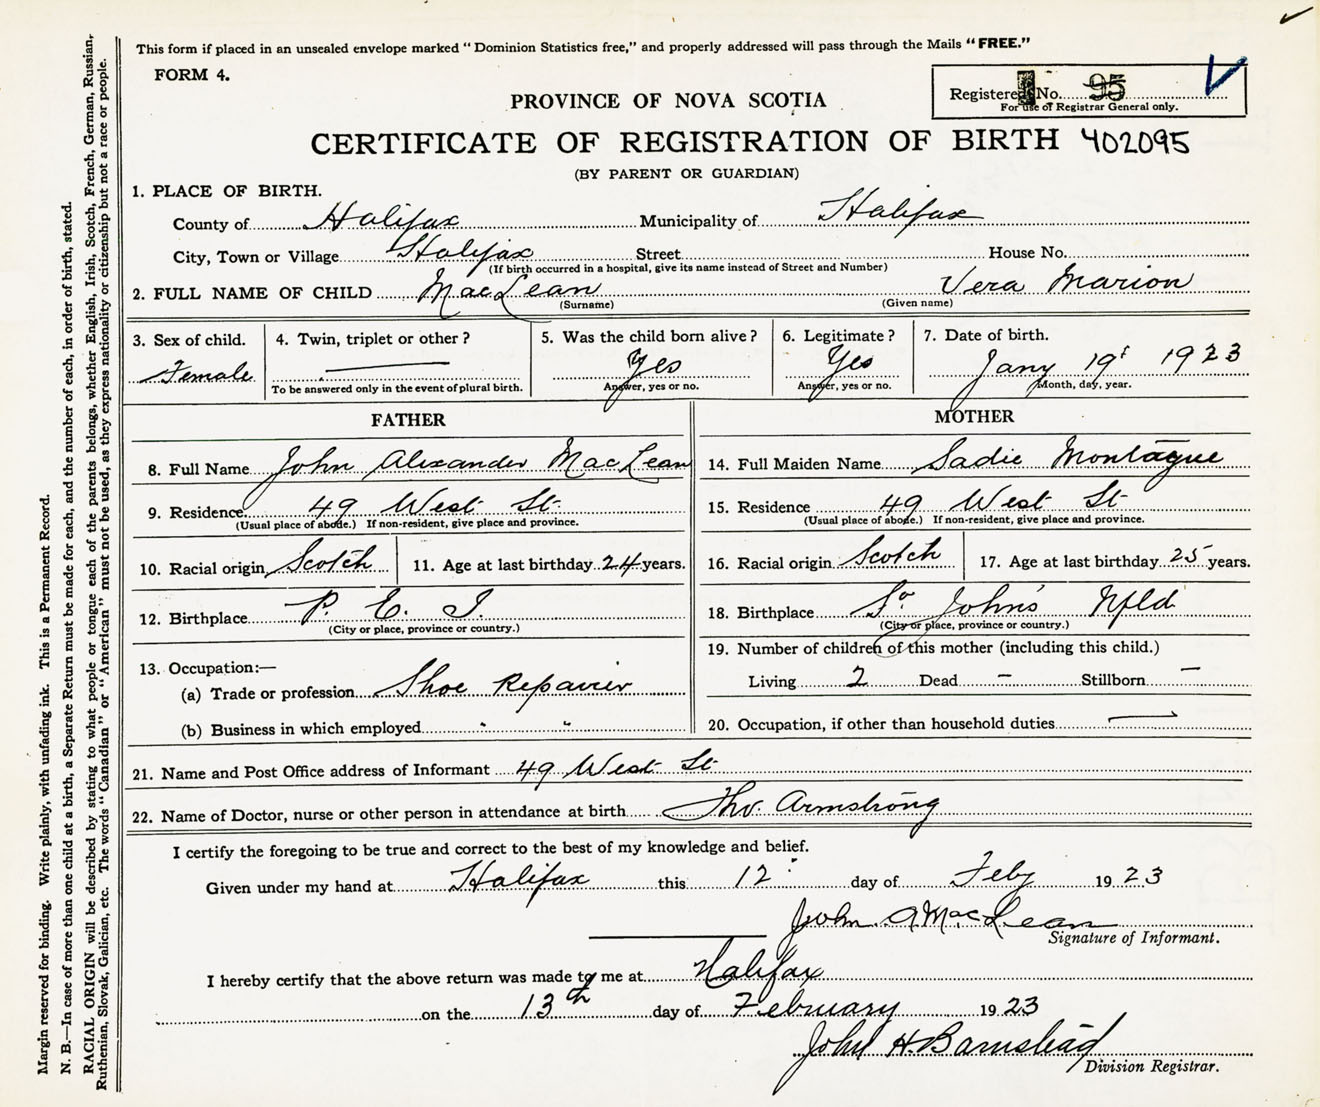 This form if placed in an unsealed envelope marked “Dominion Statistics free,” and properly addressed will pass through the Mails “FREE.”
FORM 4.
Registered No. 95
For use of Registrar General only.
PROVINCE OF NOVA SCOTIA
CERTIFICATE OF REGISTRATION OF BIRTH 402095
(BY PARENT OR GUARDIAN)
1. PLACE OF BIRTH.
County of Halifax Municipality of Halifax
City, Town or Village Halifax Street House No.
(If birth occurred in a hospital, give its name instead of Street and Number)
2. FULL NAME OF CHILD MacLean Vera Marion
(Surname) (Given name)
3. Sex of child. 4. Twin, triplet or other? 5. Was the child born alive? 6. Legitimate? 7. Date of birth.
Female — Yes Yes Jany 19t 1923
To be answered only in the event of plural birth. Answer, yes or no. Answer, yes or no. Month, day, year.
FATHER
8. Full Name John Alexander MacLean
9. Residence 49 West St.
(Usual place of abode.) If non-resident, give place and province.
10. Racial origin Scotch 11. Age at last birthday 24 years.
12. Birthplace P. E. I.
(City or place, province or country.)
13. Occupation:—
(a) Trade or profession Shoe Repairier
(b) Business in which employed " "
MOTHER
14. Full Maiden Name Sadie Montague
15. Residence 49 West St
(Usual place of abode.) If non-resident, give place and province.
16. Racial origin Scotch 17. Age at last birthday 25 years.
18. Birthplace St John's Nfld.
(City or place, province or country.)
19. Number of children of this mother (including this child.)
Living 2 Dead – Stillborn –
20. Occupation, if other than household duties —
21. Name and Post Office address of Informant 49 West St
22. Name of Doctor, nurse or other person in attendance at birth Armstrong
I certify the foregoing to be true and correct to the best of my knowledge and belief.
Given under my hand at Halifax this 12 day of Feby 1923
John A MacLean
Signature of Informant.
I hereby certify that the above return was made to me at Halifax
on the 13th day of February 1923
John H Barnstead
Division Registrar.
Margin reserved for binding. Write plainly, with unfading ink. This is a Permanent Record.
N. B.—In case of more than one child at a birth, a Separate Return must be made for each, and the number of each, in order of birth, stated.
RACIAL ORIGIN will be described by stating to what people or tongue each of the parents belongs, whether English, Irish, Scotch, French, German, Russian,
Ruthenian, Slovak, Galician, etc. The words “Canadian” or “American” must not be used, as they express nationality or citizenship but not a race or people.